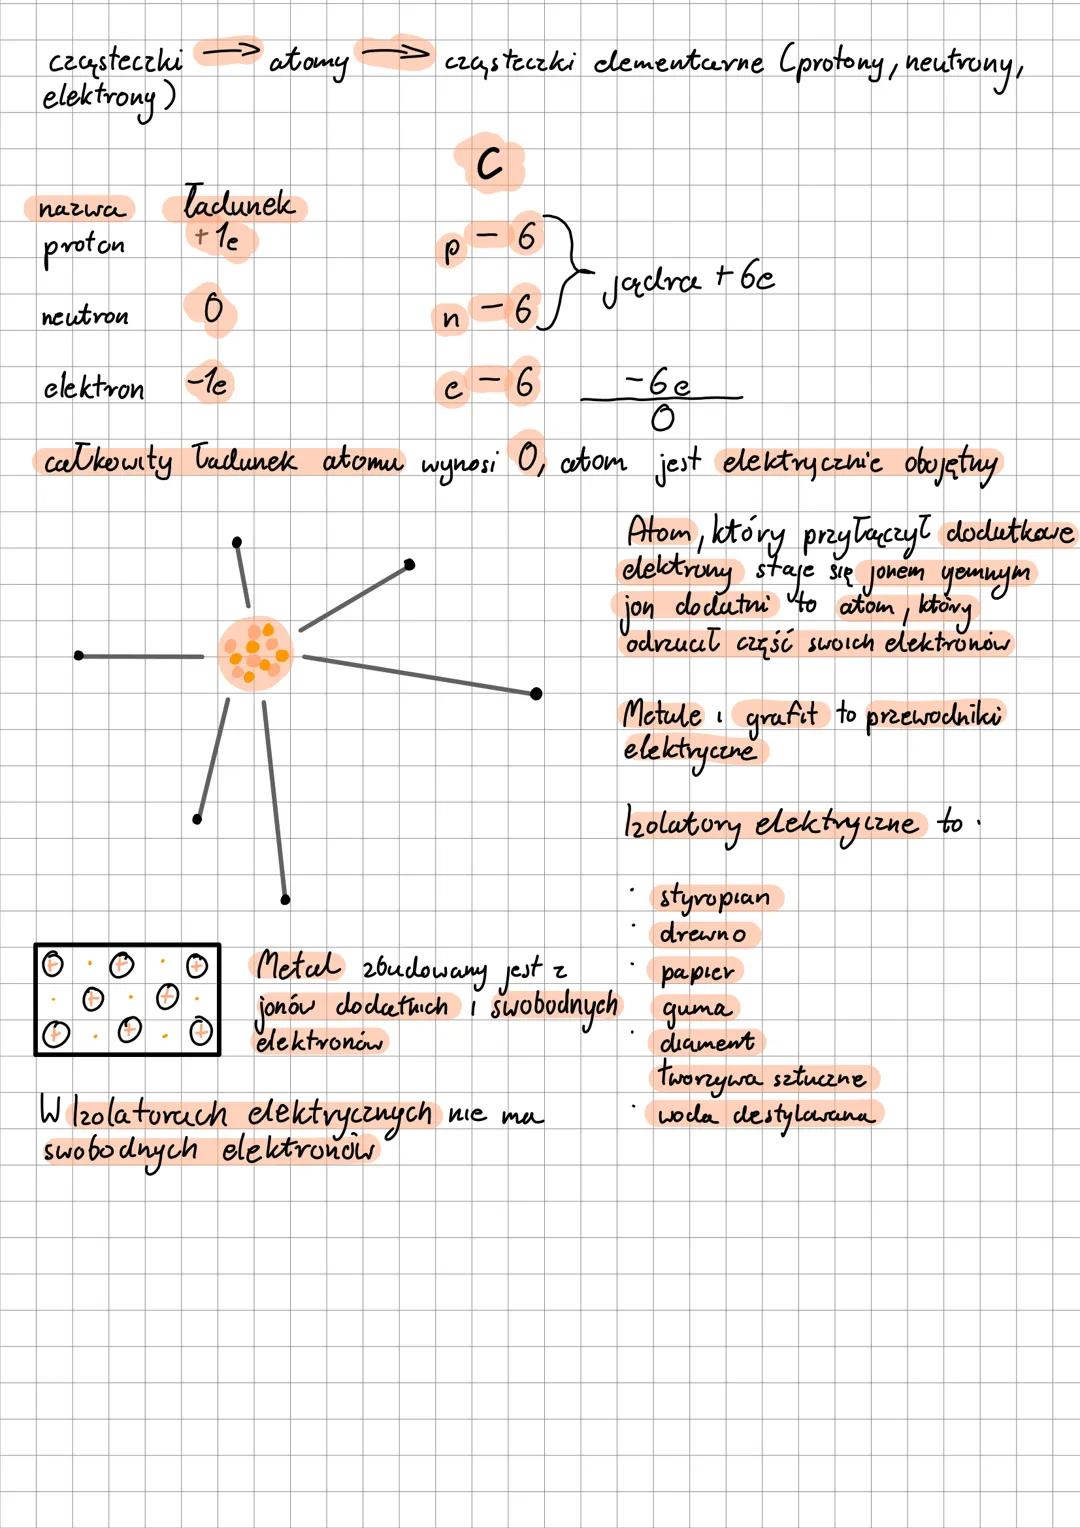 cząsteczki → atomy → cząsteczki elementarne (protony, neutrony,
elektrony)
C
nazwa ładunek
proton +1e
p – 6
neutron 0
n – 6
jądra +6e
elektron -1e
e – 6
-6e
0
całkowity ładunek atomu wynosi 0, atom jest elektrycznie obojętny
Atom, który przyłączył dodatkowe
elektrony staje się jonem ujemnym
jon dodatni to atom, który
odrzucił część swoich elektronów
Metale i grafit to przewodniki
elektryczne
Izolatory elektryczne to:
· styropian
· drewno
· papier
guma
· diament
tworzywa sztuczne
· woda destylowana
+ + +
+ +
+ + +
Metal zbudowany jest z
jonów dodatnich i swobodnych
elektronów
W Izolatorach elektrycznych nie ma
swobodnych elektronów